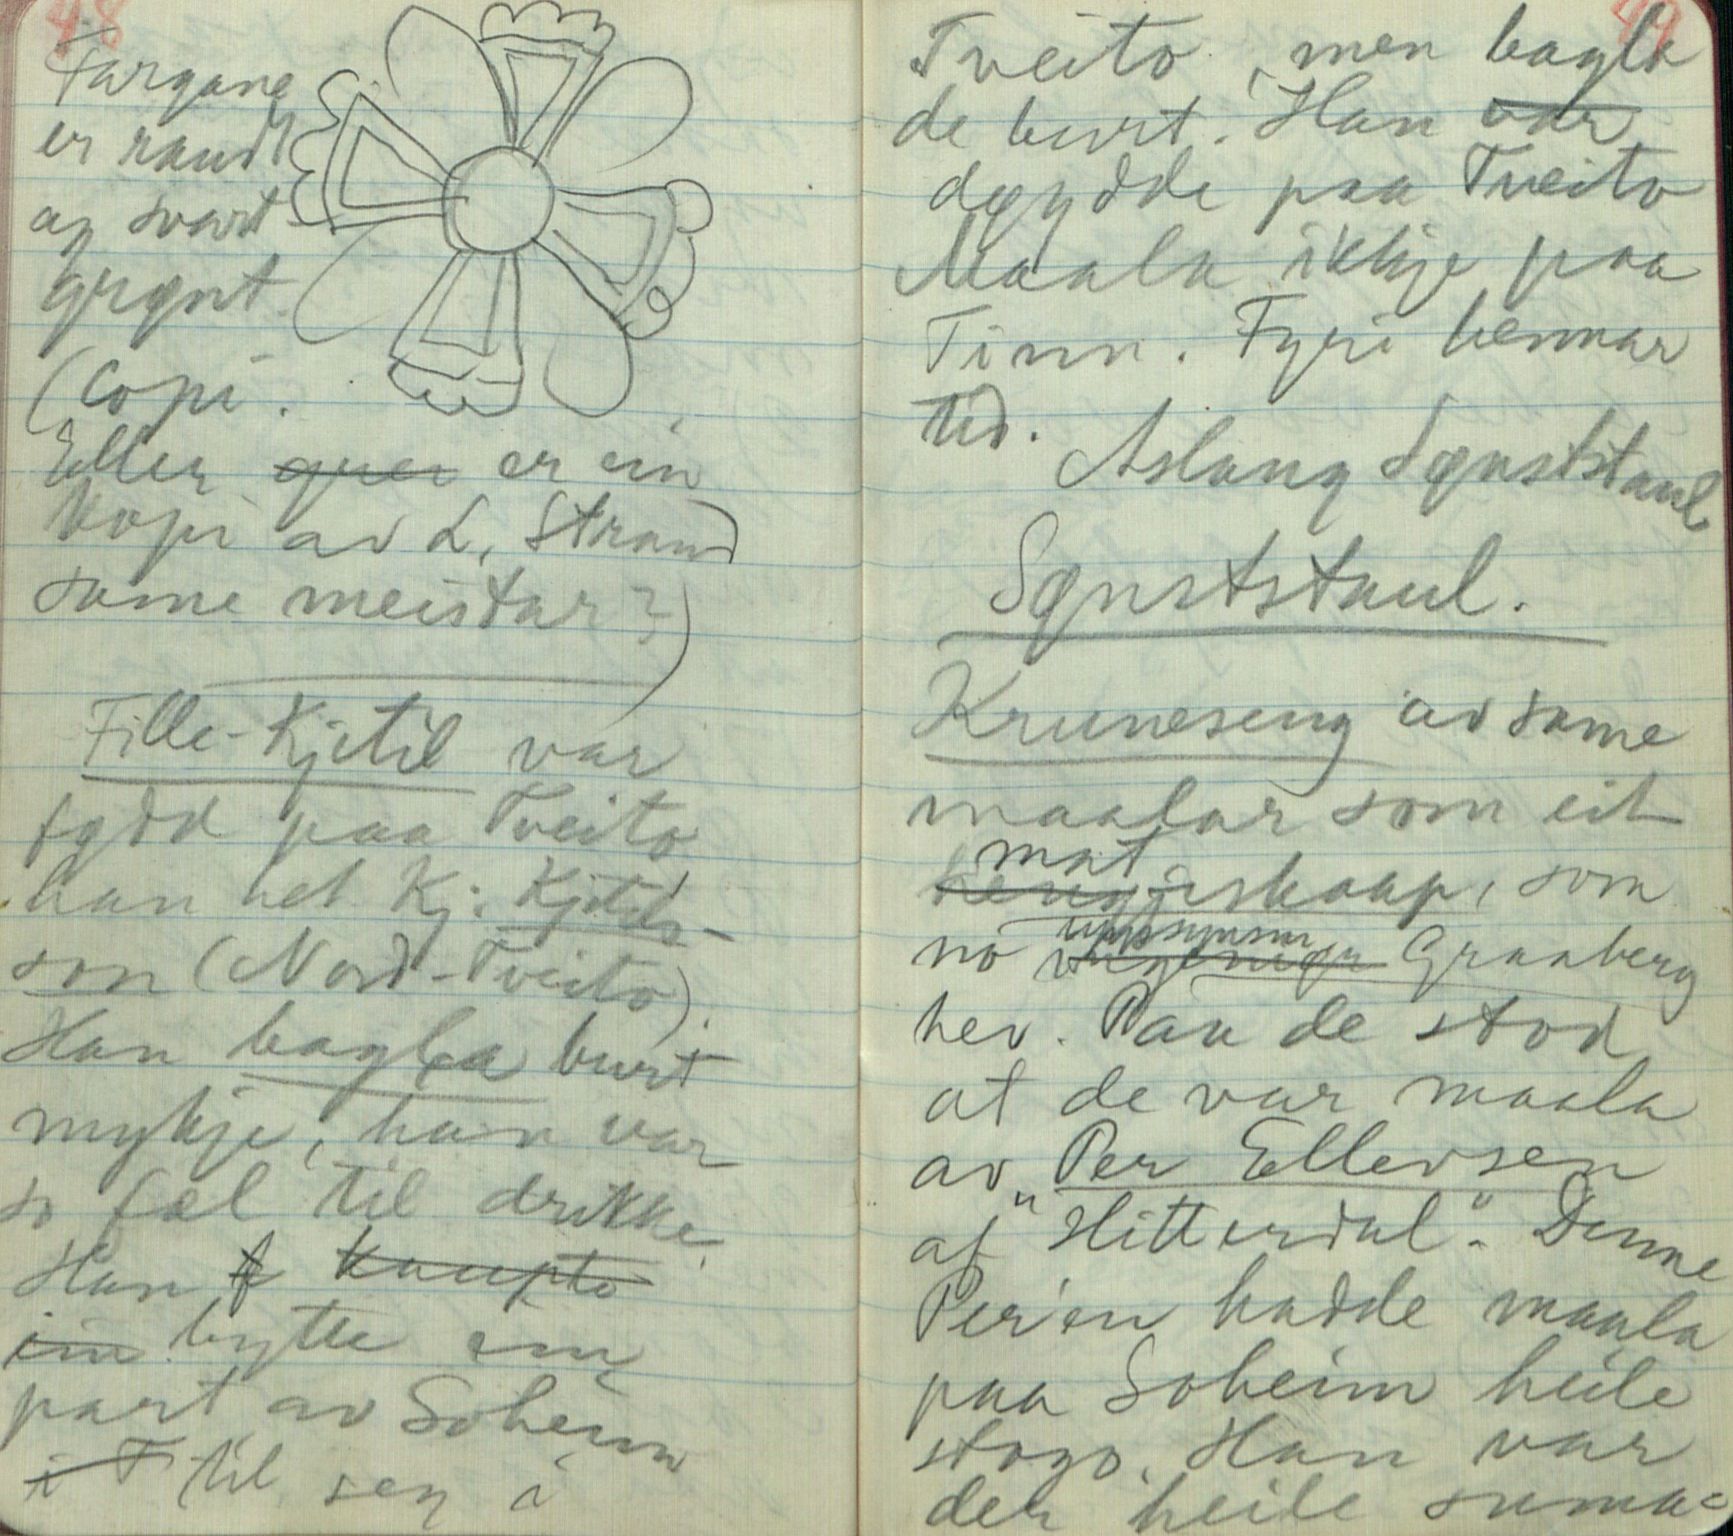 48
Fargane
er raudt
og svart
grønt.
(Copi.
Eller er ein
Kopi av L. Strand
same meistar?)
Fille-Kjetil var
fødd paa Tveito
han het Kj. Kjetils-
son (Nord-Tveito).
Han bagla burt
mykje, han var
so fæl til drikke.
Han f kaupte
ein bytte ein
part av Soheim
i T til seg i
49
Tveito, men bagla
de burt. Han var
døydde paa Tveito
Maala ikkje paa
Tinn. Fyri hennar
tid.
Aslaug Sønststaul
Sønststaul.
Kruneseng av same
maalar som eit
mat
skaap, som
no uppsynsm Graaberg
hev. Paa de stod
at de var maala
av Per Ellevsen
af "Hitterdal". Denne
Per'en hadde maala
paa Soheim heile
stogo. Han var
der heile suma-